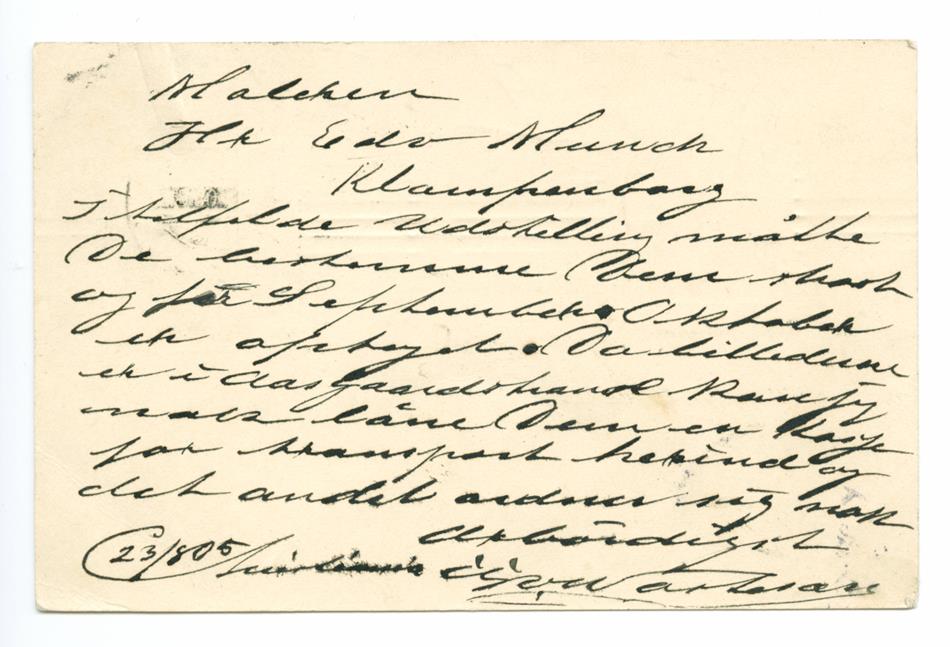 Maleren
Hr Edv Munch
Klampenborg
I tilfelde Udstilling måtte
De bestemme Dem strax
og før September. Oktober
er optaget. Da billederne
er i Aasgaardstrand kan jeg
nok låne Dem en kasse
for transport herind og
det andet ordner sig nok
Ærbødigst
23/8 05